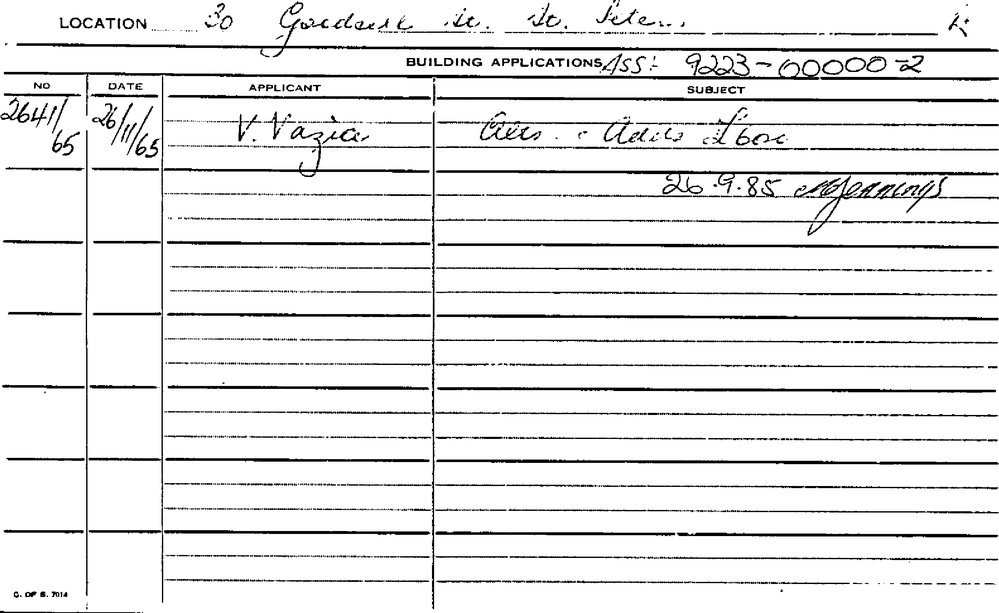 LOCATION 30 Goodsell St. St. Peters R
BUILDING APPLICATIONS ASS: 9223-00000-2
NO DATE APPLICANT SUBJECT
2641/65 26/11/65 V. Vazia Alts. & Adds
26.9.85 Jennings
C. OF S. 7014